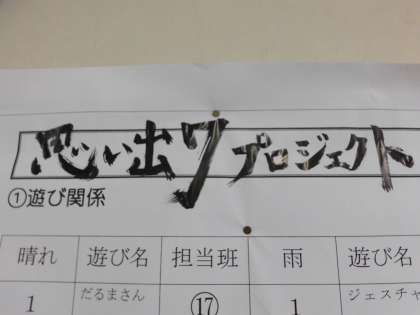 思い出7プロジェクト
①遊び関係
晴れ 遊び名 担当班 雨 遊び名
1 だるまさん ⑰ 1 ジェスチャ